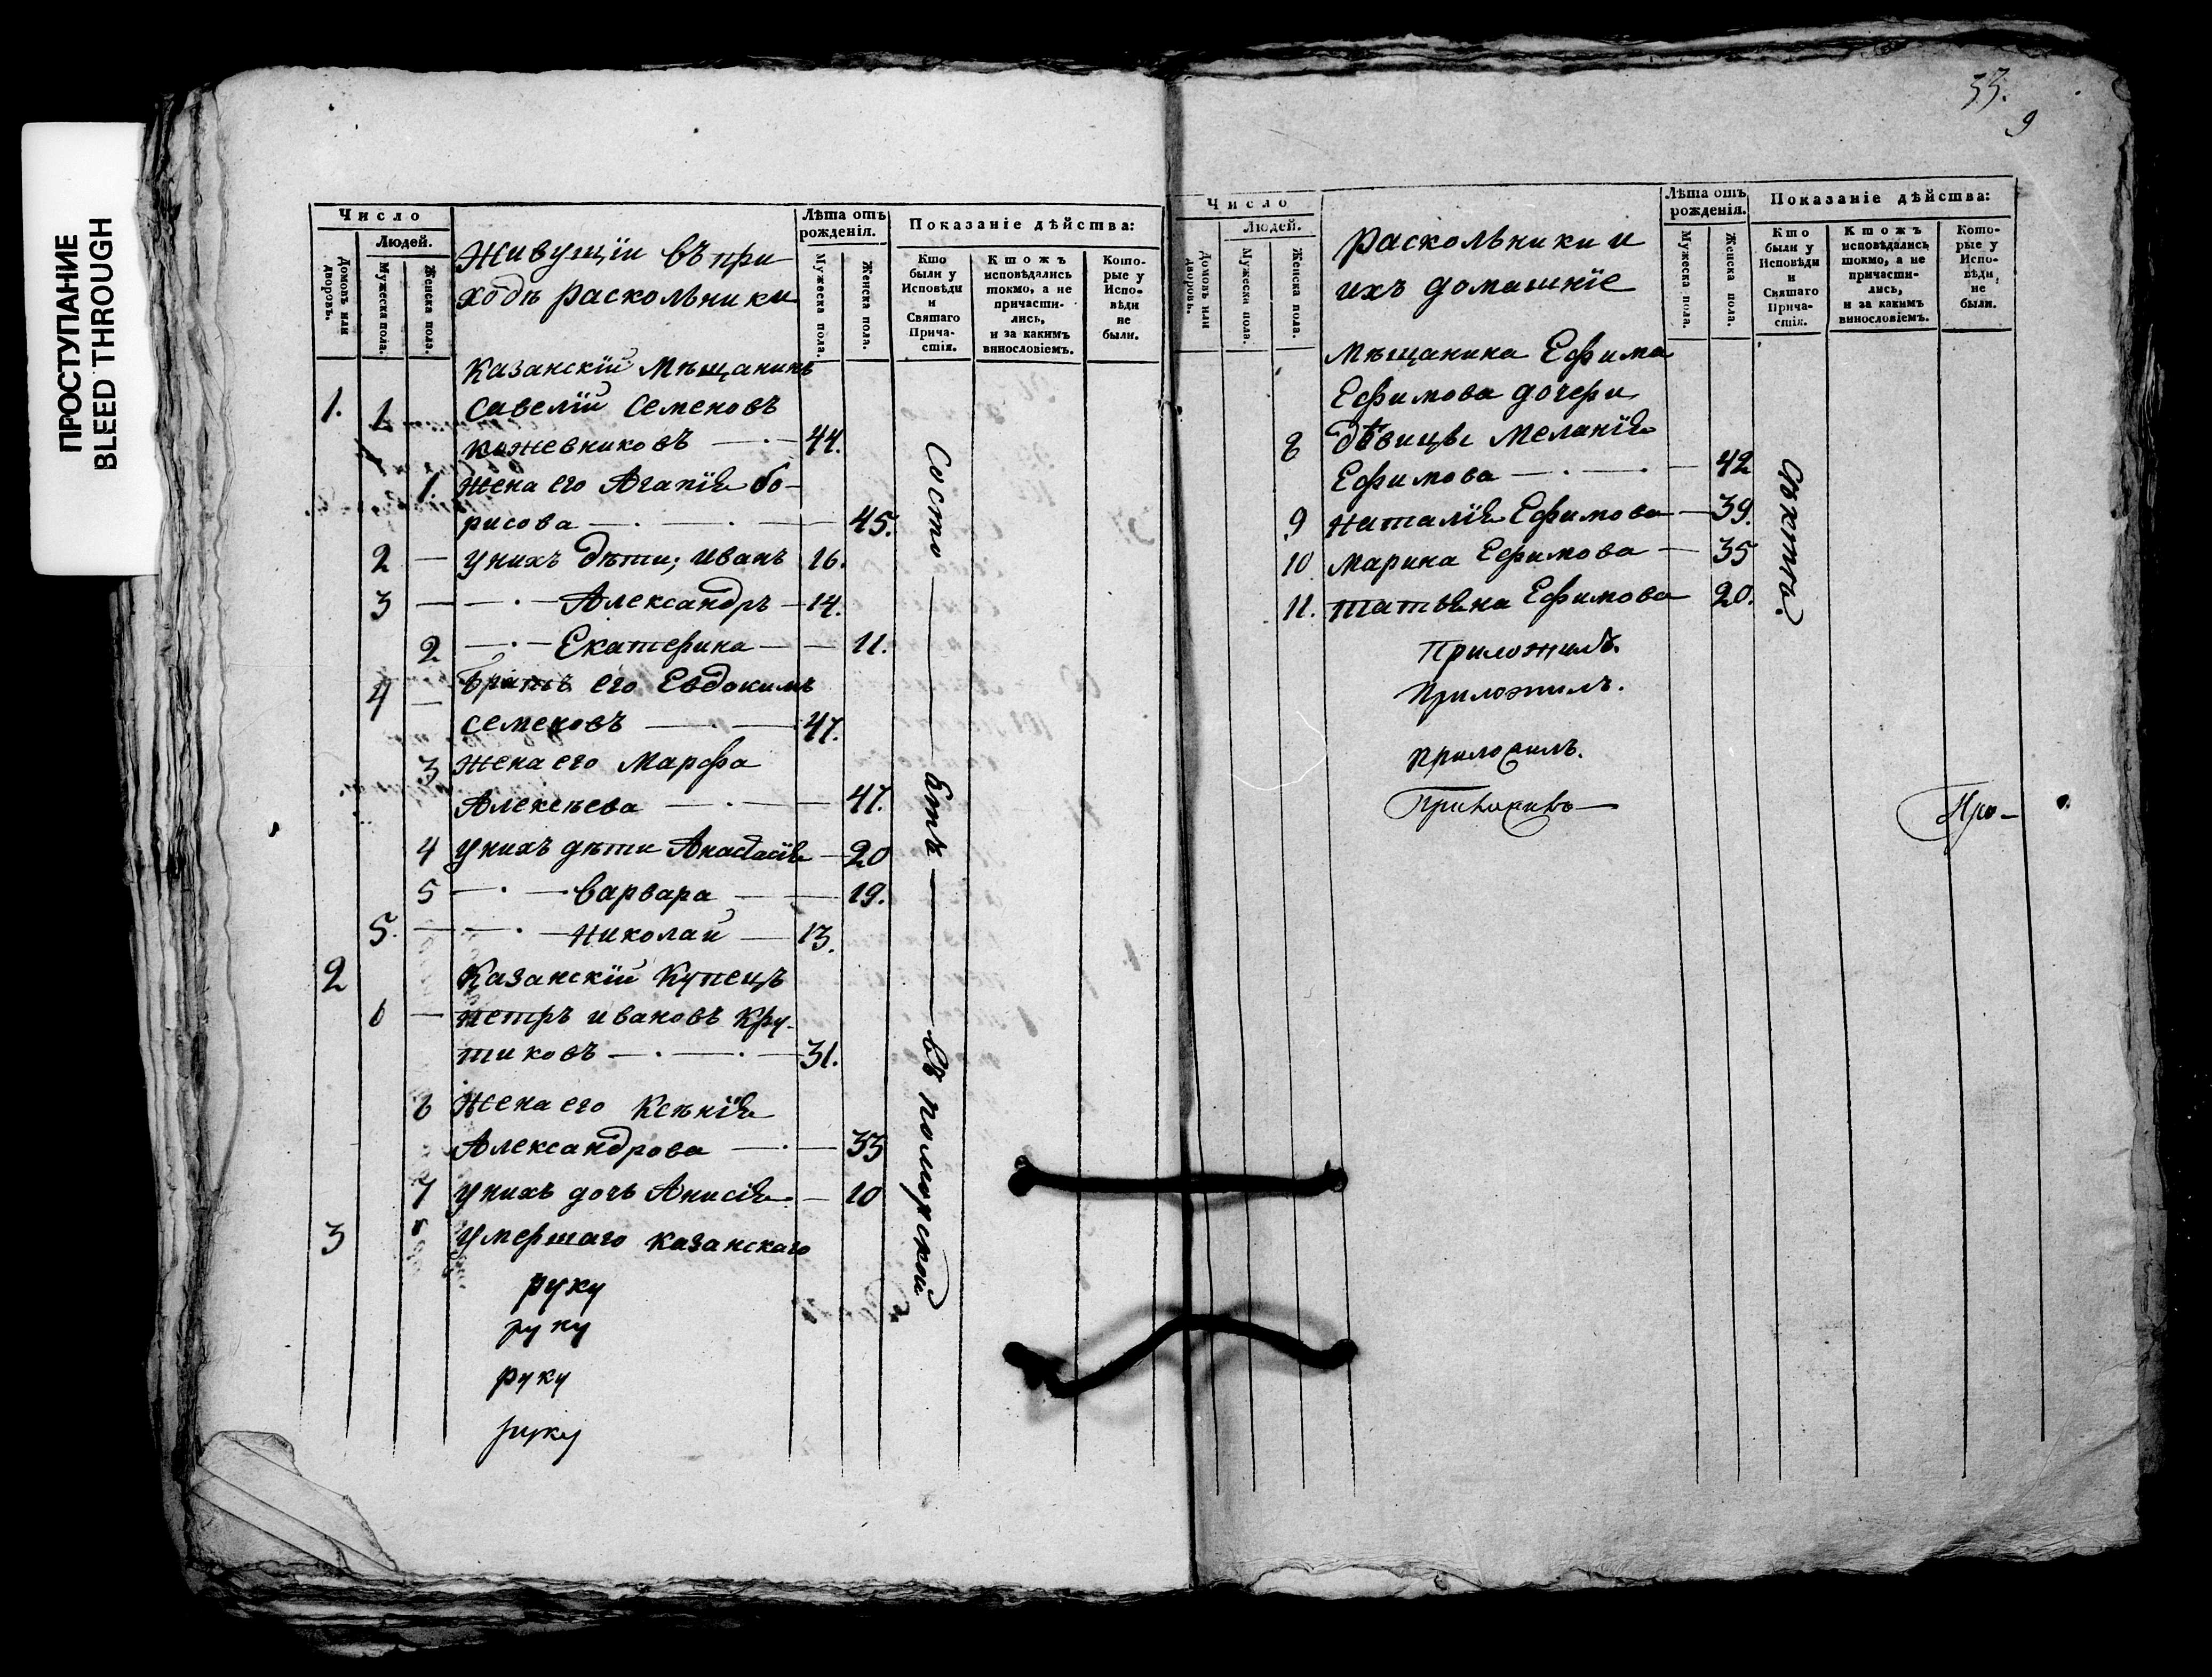 ПРОСТУПАНИЕ
BLEED THROUGH
Число
Людей.
Домовъ или дворовъ.
Мужеска пола.
Женска пола.
Живущіи въ при-
ходѣ раскольники
Лѣта отъ рожденія.
Мужеска пола.
Женска пола.
Показаніе дѣйства:
Кто были у Исповѣди и Святаго Прича-стія.
Ктожъ исповѣдались токмо, а не причасти-лись, и за какимъ винословіемъ.
Кото-рые у Испо-вѣди не были.
Казанскій Мѣщанинъ
1. 1 Савелій Семеновъ
Кожевниковъ — 44.
1. Жена его Агапія Бо-
рисова — 45.
2 — У нихъ дѣти; Иванъ 16.
3 — Александръ — 14.
2 — Екатерина — 11.
4 — Братъ его Евдокимъ
Семеновъ — 47.
3 Жена его Марфа
Алексѣева — 47.
4 У нихъ дѣти Анастасія — 20
5 — Варвара — 19.
5. — Николай — 13.
2 Казанскій Купецъ
6 — Петръ Ивановъ Кру-
тиковъ — 31.
6 Жена его Ксѣнія
Александрова — 33
7 У нихъ дочь Анисія — 10
3 Умершаго Казанскаго
Состо — ятъ — въ поморской
руку
руку
руку
руку
33.
9
Число
Людей.
Домовъ или дворовъ.
Мужеска пола.
Женска пола.
Раскольники и
ихъ домашніе
Лѣта отъ рожденія.
Мужеска пола.
Женска пола.
Показаніе дѣйства:
Кто были у Исповѣди и Святаго Прича-стія.
Ктожъ исповѣдались токмо, а не причасти-лись, и за какимъ винословіемъ.
Кото-рые у Испо-вѣди не были.
Мѣщанина Ефима
Ефимова дочери
8 Дѣвицы Меланія
Ефимова — 42
9 Наталія Ефимова — 39.
10 Марина Ефимова — 35
11. Татьяна Ефимова 20.
Сѣктѣ.
Приложилъ.
Приложилъ.
Приложилъ.